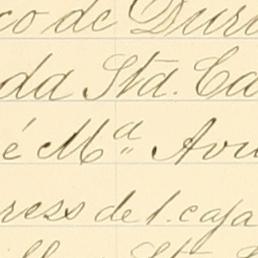 co de Dur
da Sta. Ca
é Mª Avi
ress de l. caja